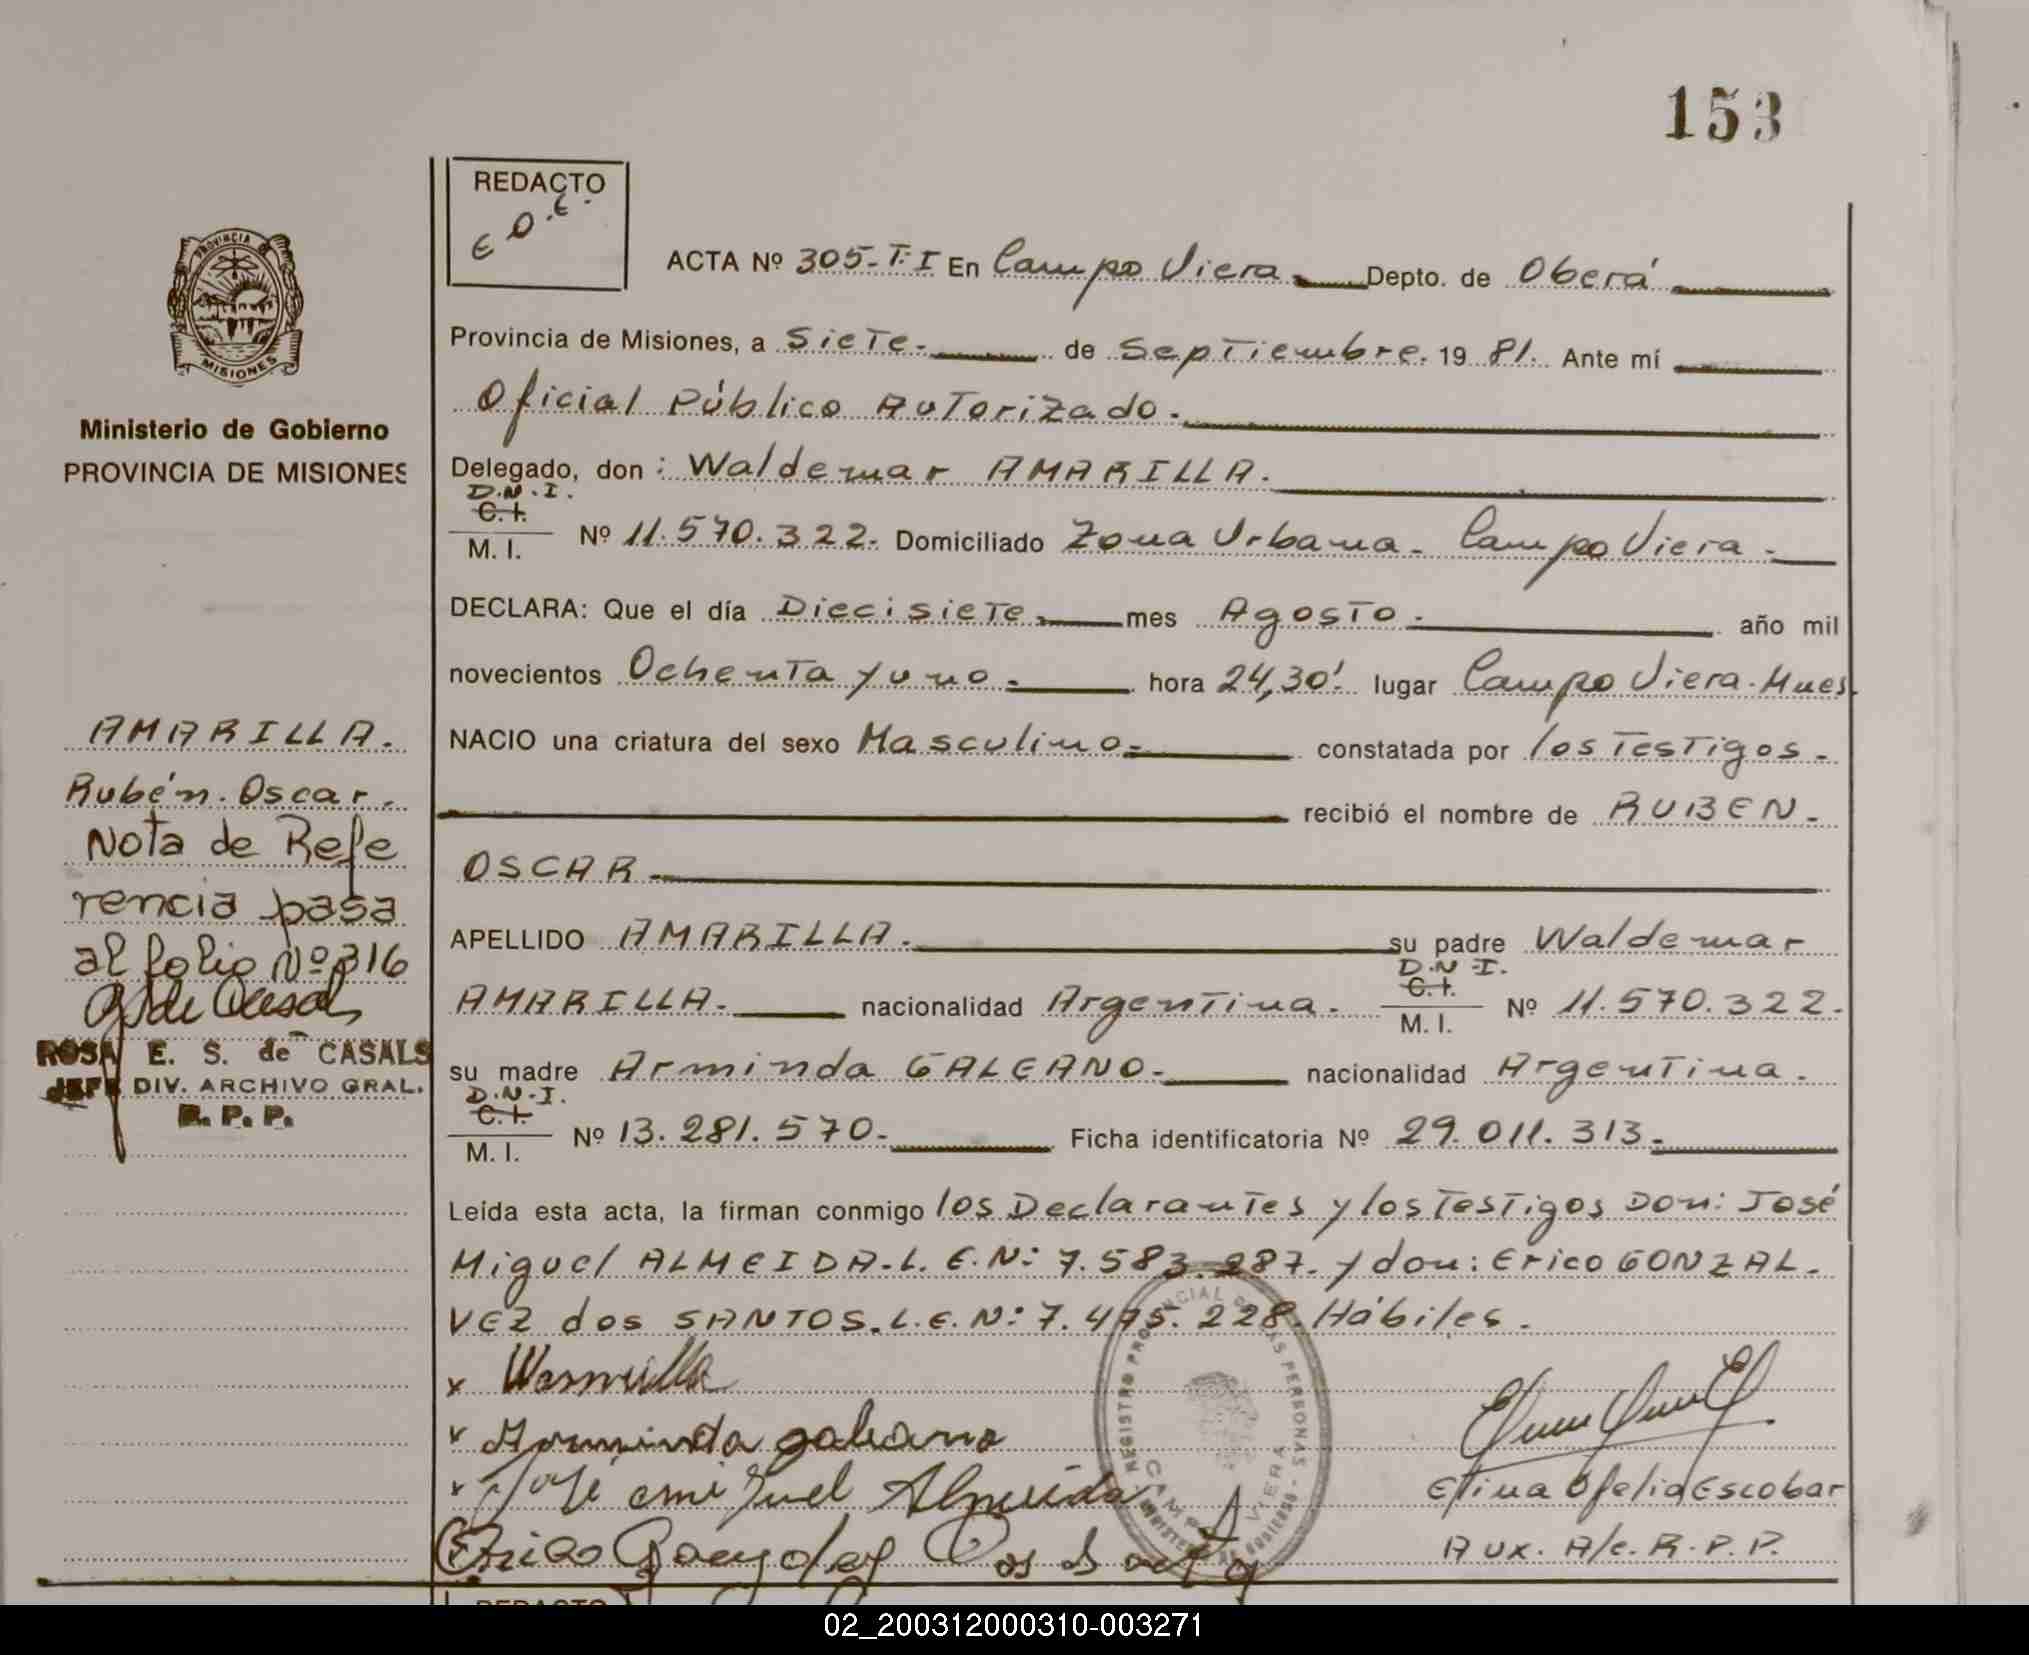 153
REDACTO
E O.E.
ACTA Nº 305-T.I En Campo Viera. Depto. de Oberá
Provincia de Misiones, a Siete. de Septiembre. 19 81. Ante mí
Oficial Público Autorizado.
Delegado, don: Waldemar AMARILLA.
D.N.I.
C.I.
M. I. Nº 11.570.322. Domiciliado Zona Urbana. Campo Viera.
DECLARA: Que el día Diecisiete. mes Agosto. año mil
novecientos Ochenta y uno. hora 24,30'. lugar Campo Viera. Mnes.
NACIO una criatura del sexo Masculino. constatada por los Testigos.
recibió el nombre de RUBEN.
OSCAR
APELLIDO AMARILLA. su padre Waldemar
D.N.I.
C.I.
AMARILLA. nacionalidad Argentina. M. I. Nº 11.570.322.
su madre Arminda GALEANO. nacionalidad Argentina.
D.N.I.
C.I.
M. I. Nº 13.281.570. Ficha identificatoria Nº 29.011.313.
Leída esta acta, la firman conmigo los Declarantes y los Testigos Don: José
Miguel ALMEIDA. L.E.N: 7.583.287. y don: Erico GONZAL.
VEZ dos SANTOS. L.E.N: 7.475.228. Hábiles.
x
x Arminda galeano
x José miguel Almeida
Erico Dos
Elina Ofelia Escobar
Aux. A/c. R.P.P.
PROVINCIA DE
MISIONES
Ministerio de Gobierno
PROVINCIA DE MISIONES
AMARILLA.
Rubén. Oscar.
Nota de Refe
rencia pasa
al folio Nº 316
ROSA E. S. de CASALS
JEFE DIV. ARCHIVO GRAL.
R. P. P.
REGISTRO PROVINCIAL DE LAS PERSONAS
CAMPO VIERA
REDACTO
02_200312000310-003271